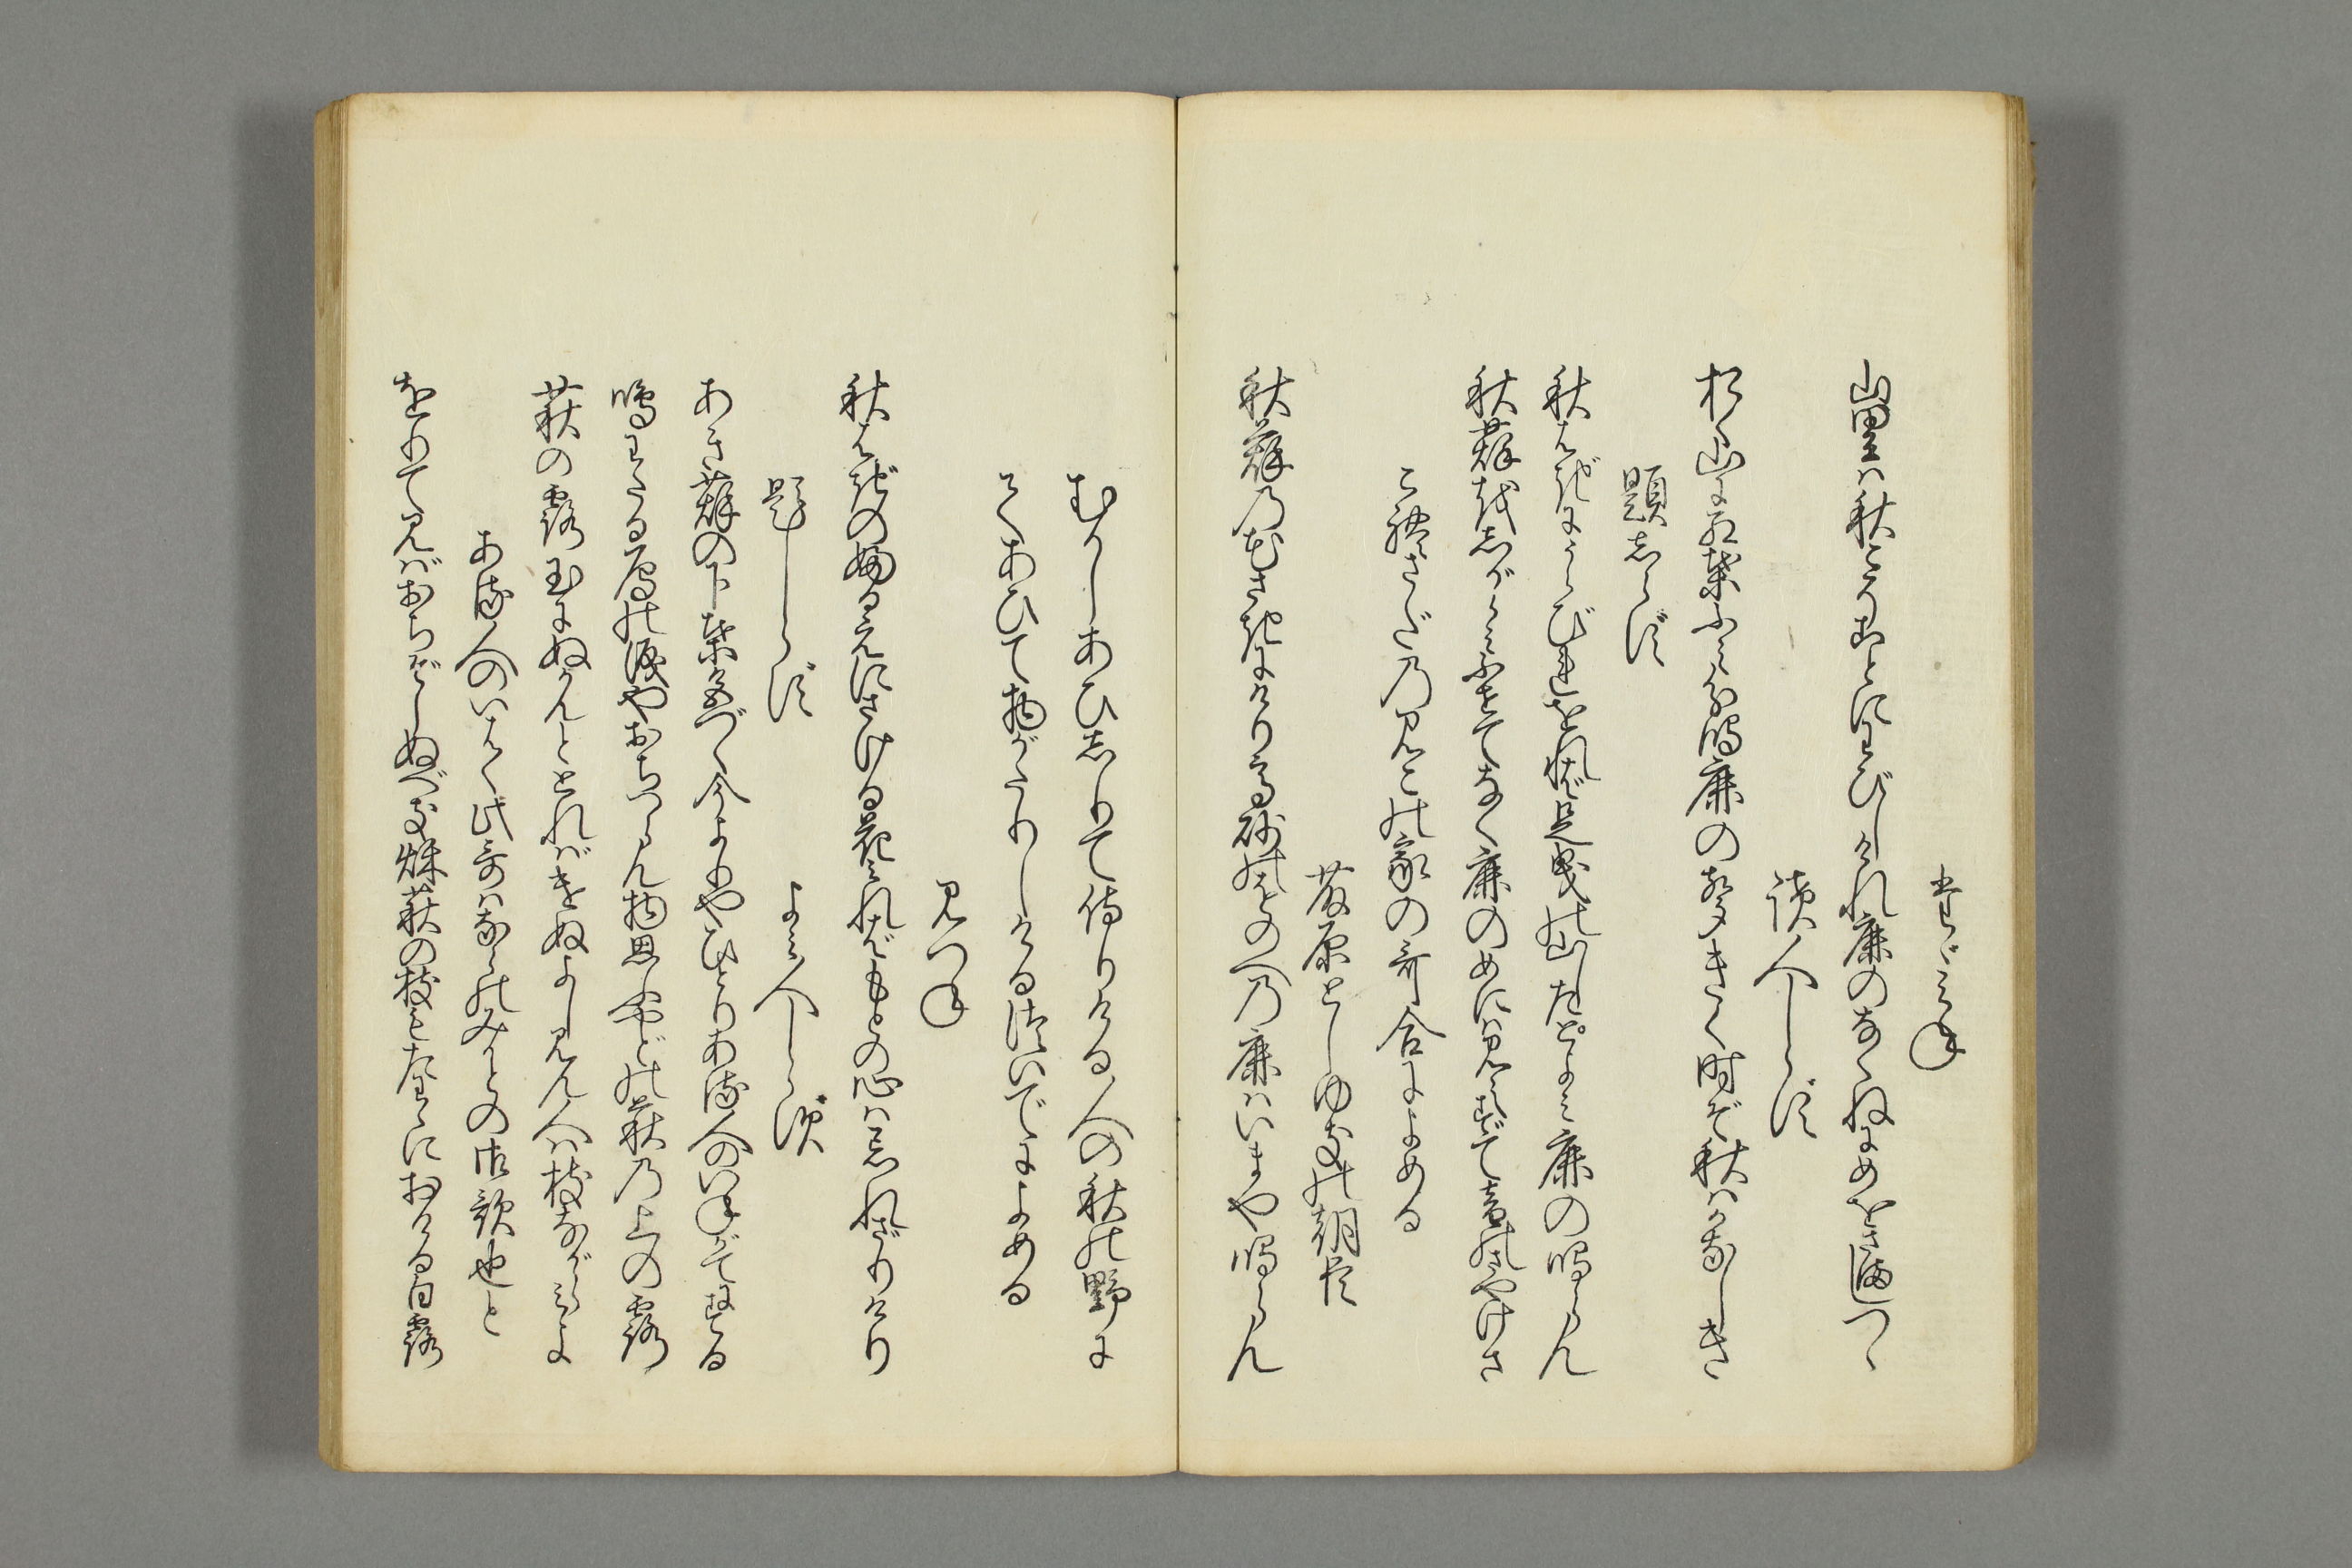 たゞみね
山里は秋こそことにわびしけれ鹿のなくねにめをさましつゝ
読人しらず
おく山に紅葉ふみわけ鳴鹿の声きく時ぞ秋はかなしき
題しらず
秋はぎにうらびれをれば足曳の山したとよみ鹿の鳴らん
秋萩をしがらみふせてなく鹿のめには見えずて音のさやけさ
これさだのみこの家の哥合によめる
藤原としゆきの朝臣
秋萩の花さきにけり高砂のをのへの鹿はいまや鳴らん
むかしあひしりて侍りける人の秋の野に
てあひて物がたりしけるついでによめる
みつね
秋はぎの婦る えにさける花みればもとの心は忘れざりけり
題しらず
よみ人しらず
あき萩の下葉色づく今よりやひとりある人のいねがてにする
鳴わたる鳫の涙やおちつらん物思ふやどの萩の上の露
萩の露玉にぬかんととればけぬよし見ん人は枝ながらみよ
ある人のいはく此哥はならのみかどの御歌也と
をりて見ばおちぞしぬべき秌萩の枝もたわゝにおける白露